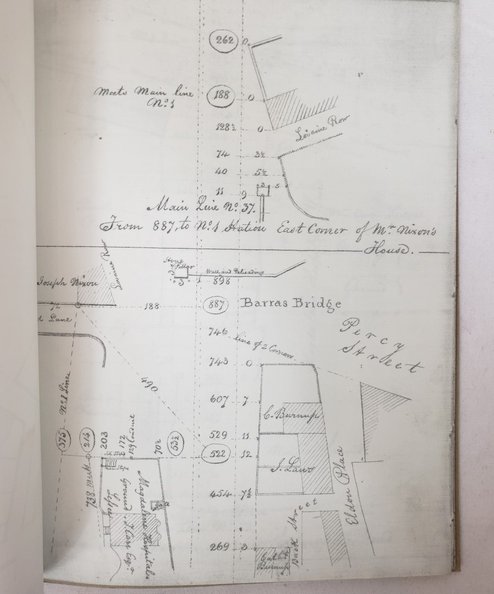 262 0
Meets Main line
No. 1
188 0
128½ 0
Loraine Row
74 3½
40 5½
3 5
11 9
Main Line No. 37.
From 887, to No. 1 Station East Corner of Mr. Nixon's
House.
Joseph Nixon
Loraine Row
Lane
188
Wall and Palisading
898
3 3
887 Barras Bridge
Percy
Street
746
line of 2 Corners
743 0
490
607 7
C. Burnup
No. 1 Line
529 11
522 12
J. Laws
454 7½
Eldon Place
Back Street
269 3
Cut.
Burnup
375
215
203
172
169
702
532
738
Magdalene Hospital
Ground